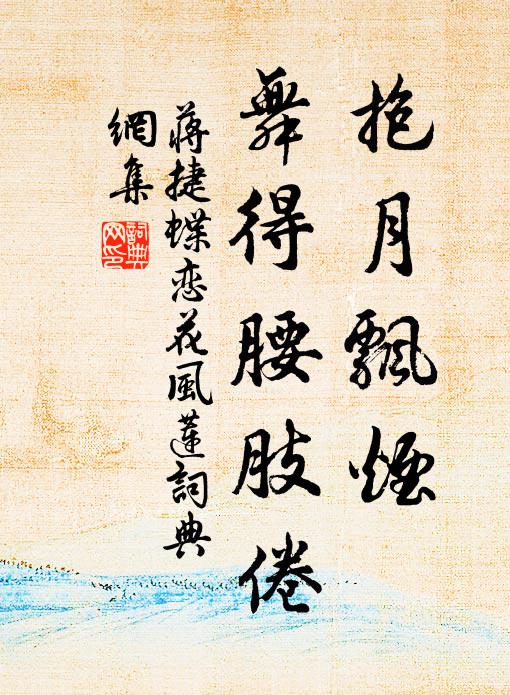 抱月飄煙
舞得腰肢倦
蔣捷蝶恋花風蓮詞典
網集
詞典
网印